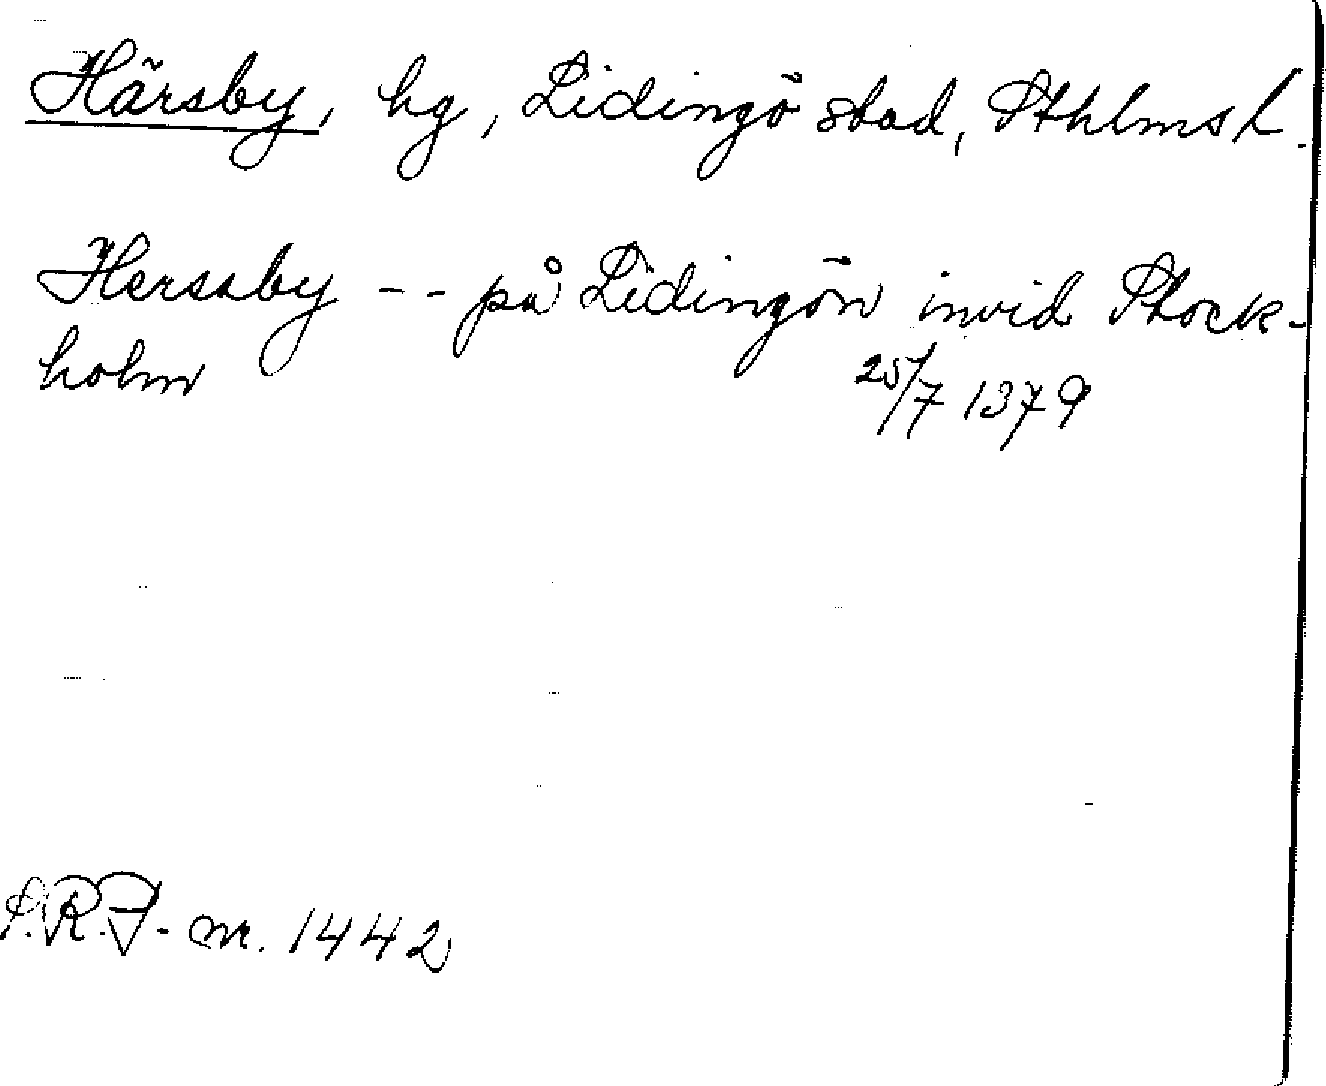 Härsby, hg, Lidingö stad, Sthlms l.
Herssby -- på Lidingön invid Stock-
holm 25/7 1379
S.R.P. nr. 1442